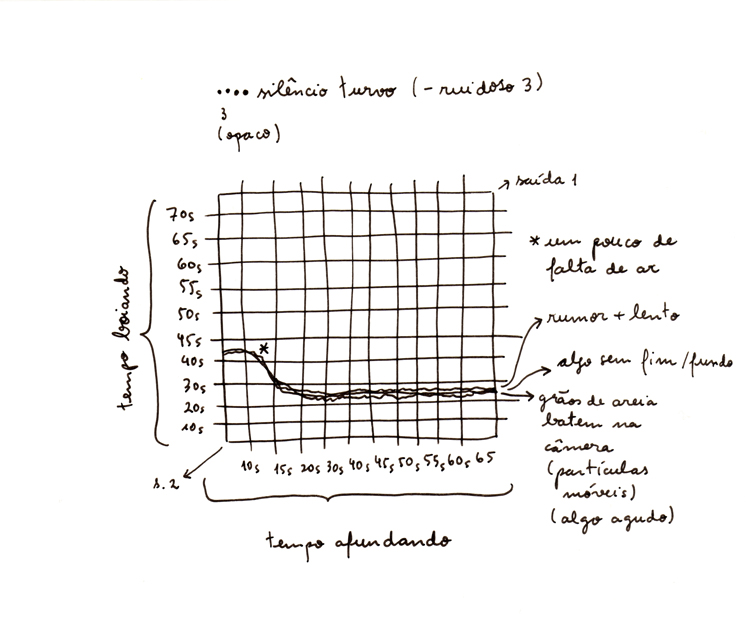 .... silêncio turvo (- ruidoso 3)
3
(opaco)
saída 1
70s
65s
60s
55s
50s
45s
40s
30s
20s
10s
tempo boiando
*
* um pouco de
falta de ar
rumor + lento
algo sem fim/fundo
grãos de areia
batem na
câmera
(partículas
móveis)
(algo agudo)
10s 15s 20s 30s 40s 45s 50s 55s 60s 65
s.2
tempo afundando